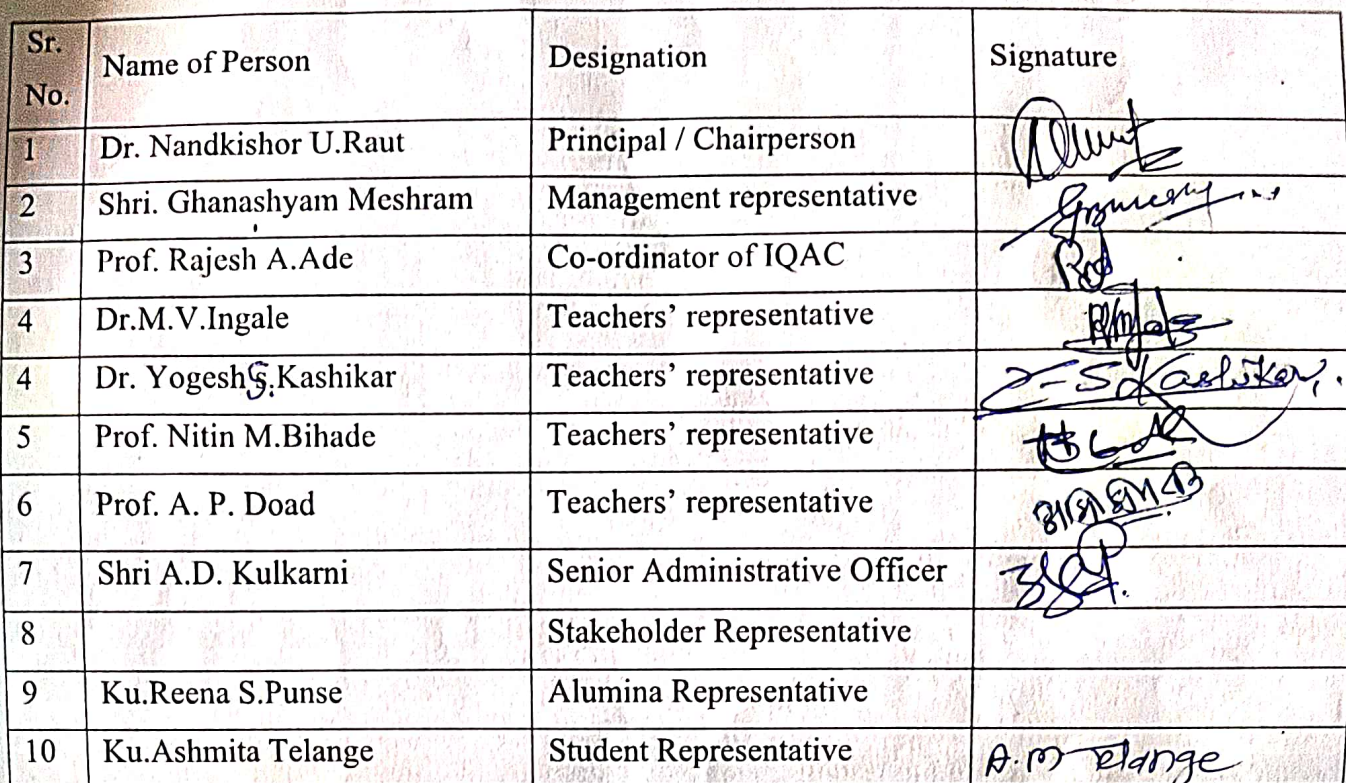 Sr. No. Name of Person Designation Signature
1 Dr. Nandkishor U.Raut Principal / Chairperson
2 Shri. Ghanashyam Meshram Management representative
3 Prof. Rajesh A.Ade Co-ordinator of IQAC
4 Dr.M.V.Ingale Teachers' representative
4 Dr. Yogesh S.Kashikar Teachers' representative Y-S Kashikar
5 Prof. Nitin M.Bihade Teachers' representative
6 Prof. A. P. Doad Teachers' representative
7 Shri A.D. Kulkarni Senior Administrative Officer
8 Stakeholder Representative
9 Ku.Reena S.Punse Alumina Representative
10 Ku.Ashmita Telange Student Representative A.M Telange